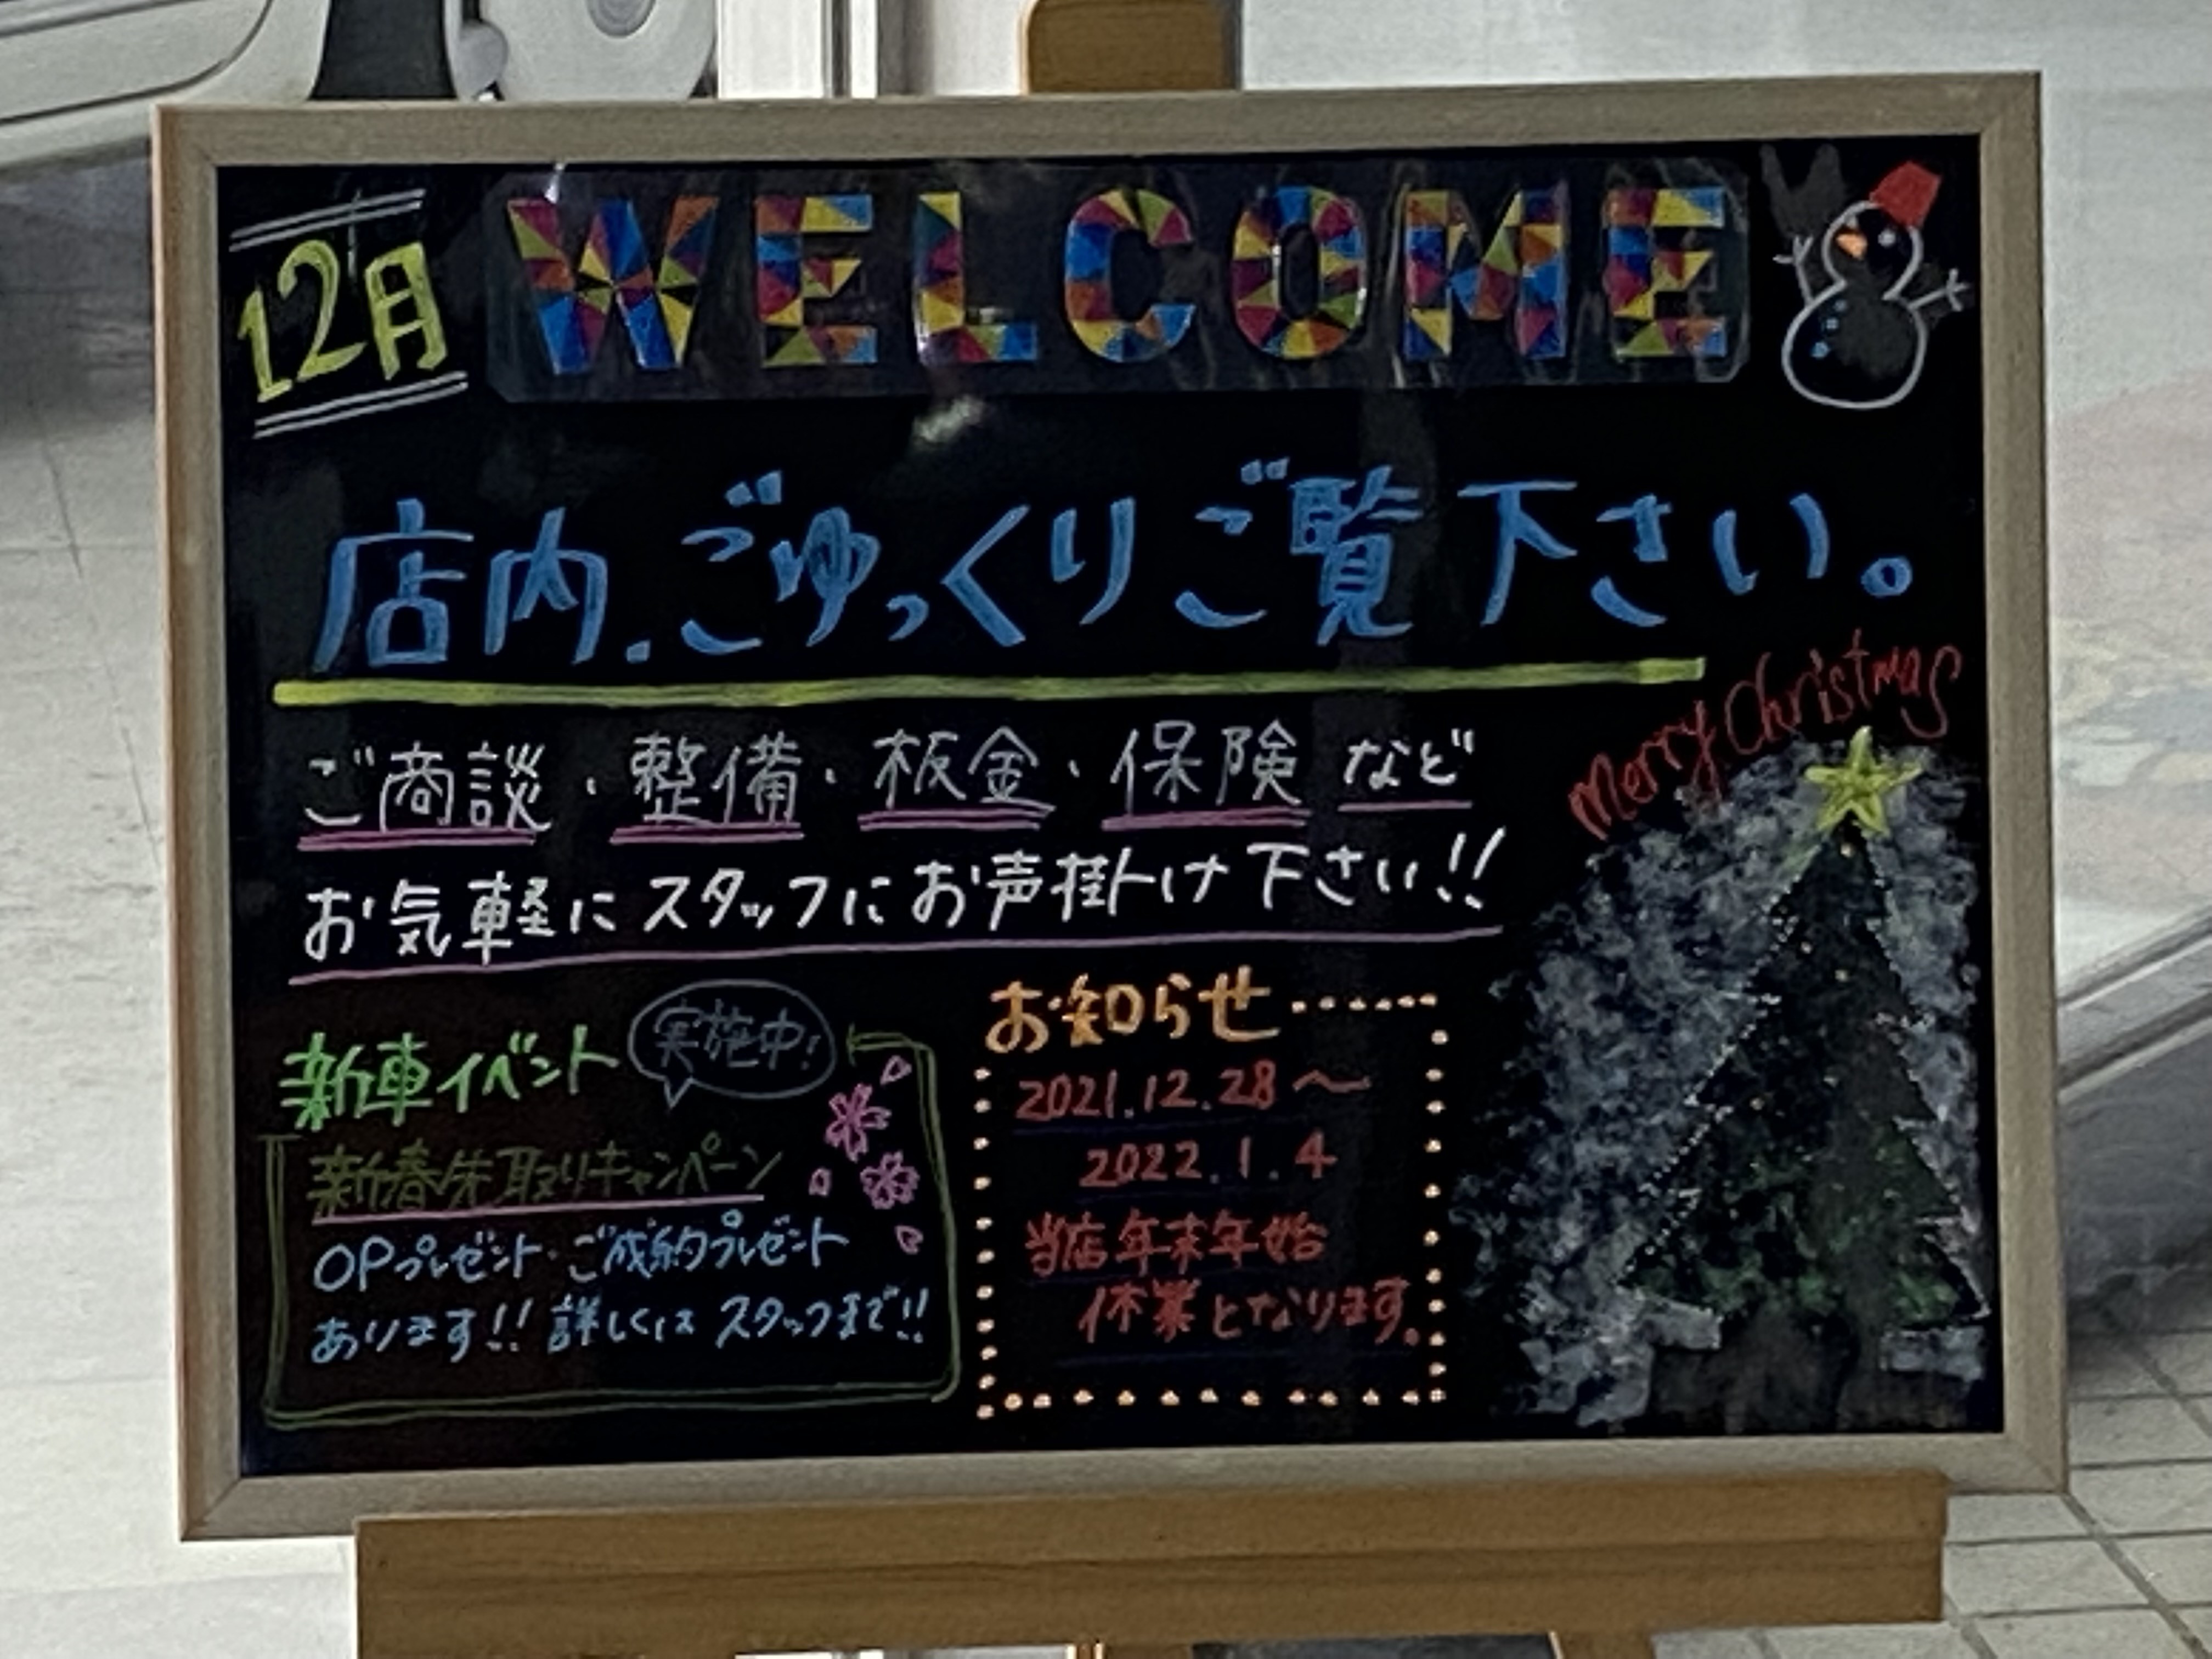 12月
WELCOME
店内.ごゆっくりご覧下さい。
Merry Christmas
ご商談・整備・板金・保険 など
お気軽にスタッフにお声掛け下さい!!
新車イベント
実施中!
新春先取りキャンペーン
OPプレゼント・ご成約プレゼント
あります!! 詳しくは スタッフまで!!
お知らせ
2021.12.28〜
2022.1.4
当店年末年始
休業となります。